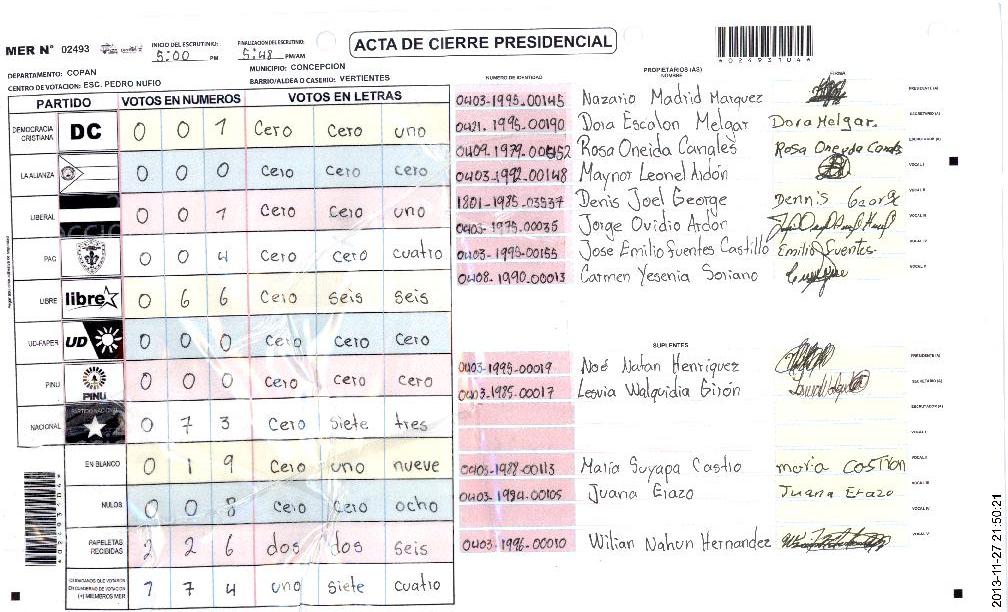 MER N° 02493
INICIO DEL ESCRUTINIO: 5:00 PM
FINALIZACION DEL ESCRUTINIO: 5:48 PM/AM
ACTA DE CIERRE PRESIDENCIAL
*0249310 4*
DEPARTAMENTO: COPAN
MUNICIPIO: CONCEPCION
CENTRO DE VOTACION: ESC. PEDRO NUFIO
BARRIO/ALDEA O CASERIO: VERTIENTES
PARTIDO VOTOS EN NUMEROS VOTOS EN LETRAS
DEMOCRACIA CRISTIANA DC 0 0 1 Cero Cero uno
LA ALIANZA 0 0 0 Cero Cero Cero
LIBERAL 0 0 1 Cero Cero uno
PAC 0 0 4 Cero Cero cuatro
LIBRE libre 0 6 6 Cero Seis Seis
UD-FAPER UD 0 0 0 Cero Cero Cero
PINU PINU 0 0 0 Cero Cero Cero
NACIONAL PARTIDO NACIONAL 0 7 3 Cero Siete tres
EN BLANCO 0 1 9 Cero uno nueve
NULOS 0 0 8 Cero Cero ocho
PAPELETAS RECIBIDAS 2 2 6 dos dos seis
CIUDADANOS QUE VOTARON EN CUADERNO DE VOTACION (+) MIEMBROS MER 1 7 4 uno Siete cuatro
NUMERO DE IDENTIDAD PROPIETARIOS (AS) NOMBRE FIRMA
0403-1995-00145 Nazario Madrid Marquez PRESIDENTE (A)
0421-1995-00190 Dora Escalon Melgar Dora Melgar. SECRETARIO (A)
0409-1979-00552 Rosa Oneida Canales Rosa Oneyda Canales ESCRUTADOR (A)
0403-1992-00148 Maynor Leonel Ardón VOCAL I
1801-1985-03537 Denis Joel George Dennis George VOCAL II
0403-1975-00035 Jorge Ovidio Ardon VOCAL III
0403-1995-00155 Jose Emilio Fuentes Castillo Emilio Fuentes. VOCAL IV
0408-1990-00013 Carmen Yesenia Soriano VOCAL V
SUPLENTES
0403-1995-00019 Noé Natan Henriquez PRESIDENTE (A)
0403-1985-00017 Lesvia Walquidia Girón SECRETARIO (A)
ESCRUTADOR (A)
VOCAL I
0403-1988-00113 Maria Suyapa Castro VOCAL II
0403-1984-00105 Juana Erazo Juana Erazo VOCAL III
VOCAL IV
0403-1996-00010 Wilian Nahun Hernandez VOCAL V
2013-11-27 21:50:21